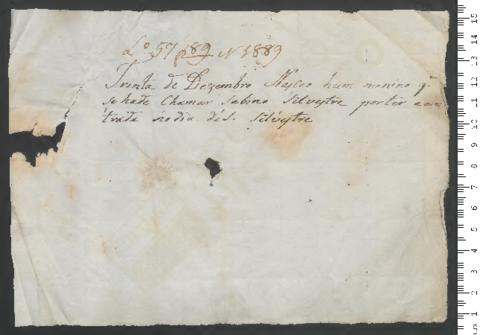 Lo 57 f 89 N 1889
Trinta de Dezembro Nasceo hum menino q
se hade Chamar Sabino Silvestre por ter a en
trada no dia de S. Silvestre
15
14
13
12
11
10
9
8
7
6
5
4
3
2
1